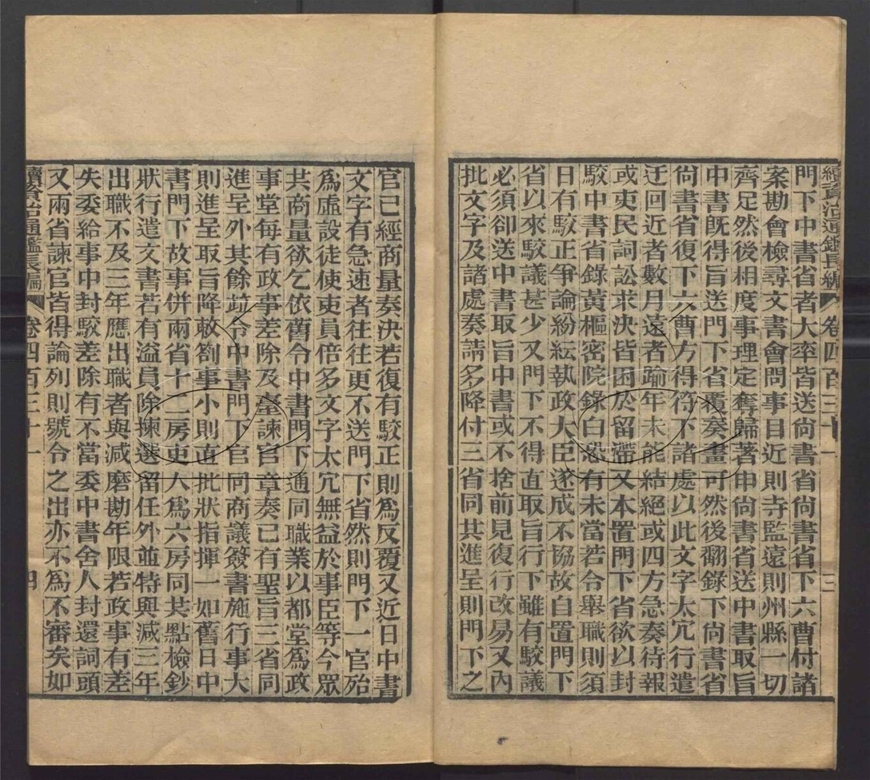 續資治通鑑長編 卷四百三十一 三
門下中書省者大率皆送尚書省尚書省下六曹付諸
案勘會檢尋文書會問事目近則寺監遠則州縣一切
齊足然後相度事理定奪歸著申尚書省送中書取旨
中書既得旨送門下省覆奏畫可然後翻錄下尚書省
尚書省復下六曹方得符下諸處以此文字太冗行遣
迂回近者數月遠者踰年未能結絕或四方急奏待報
或吏民詞訟求決皆困於留滯又本置門下省欲以封
駮中書省錄黃樞密院錄白恐有未當若令舉職則須
日有駮正爭論紛紜執政大臣遂成不協故自置門下
省以來駮議甚少又門下不得直取旨行下雖有駮議
必須卻送中書取旨中書或不捨前見復行改易又內
批文字及諸處奏請多降付三省同共進呈則門下之
官已經商量奏決若復有駮正則為反覆又近日中書
文字有急速者往往更不送門下省然則門下一官殆
為虛設徒使吏員倍多文字太冗無益於事臣等今眾
共商量欲乞依舊令中書門下通同職業以都堂為政
事堂每有政事差除及臺諫官章奏已有聖旨三省同
進呈外其餘竝令中書門下官同商議簽書施行事大
則進呈取旨降敕劄事小則直批狀指揮一如舊日中
書門下故事併兩省十二房吏人為六房同共點檢鈔
狀行遣文書若有溢員除揀選留任外並特與減三年
出職不及三年應出職者與減磨勘年限若政事有差
失委給事中封駮差除有不當委中書舍人封還詞頭
又兩省諫官皆得論列則號令之出亦不為不審矣如
續資治通鑑長編 卷四百三十一 四